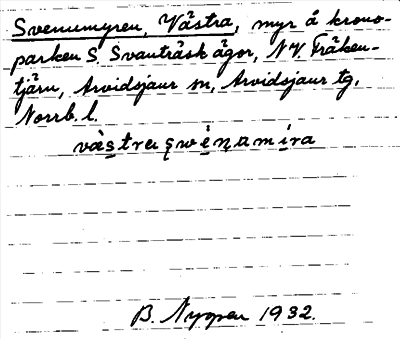 Svenumyren, Västra, myr å krono-
parken S. Svanträsk ägor, N.V. Fräken-
tjärn, Arvidsjaur sn, Arvidsjaur tg,
Norrb. l.
B. Nygren 1932.